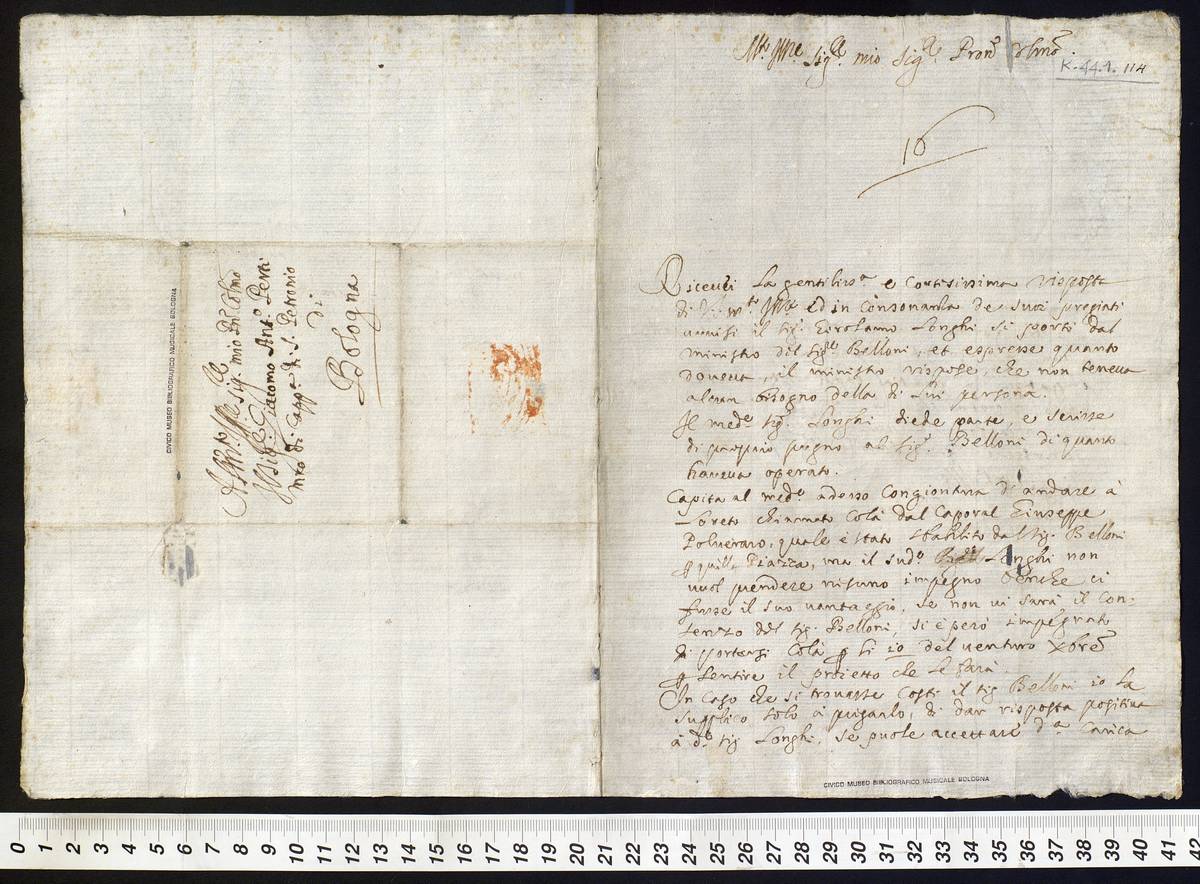 All' Mto Illre Sigre Sig. mio Pron Colmo
Il Sigr Giacomo Ant.o Perti
Mro di Capp.a di S. Petronio
di
Bologna
CIVICO MUSEO BIBLIOGRAFICO MUSICALE BOLOGNA
Mto Illre Sigre mio Sigre Pron Colmo
K.44.1.114
10
Ricevei La gentiliss.a e Cortesissima risposta
di V.S. m.to Illre ed in Consonanza de suoi pregiati
avvisi il sig. Girolamo Longhi si portò dal
ministro del sigre Belloni, et espresse quanto
doveva, il ministro rispose, che non teneva
alcun bisogno della di lui persona.
Il med.o sig. Longhi diede parte, e scrisse
di proprio pugno al sig. Belloni di quanto
haveva operato.
Capita al med.o adesso Congiontura d'andare à
Loreto chiamato Colà dal Caporal Giuseppe
Polveraro, quale è stato stabilito dal sig. Belloni
p quella Piazza, ma il sud.o Longhi non
vuol prendere nisuno impegno benche ci
fusse il suo vantaggio, se non vi sarà il Con-
senso del sig. Belloni, si è però impegnato
di portarsi Colà p li 10 del venturo Xbre
p sentire il proietto che se farà.
In Caso che si trovasse Costì il sig Belloni io La
supplico solo à pregarlo, di dar risposta positiva
à d.o sig Longhi, se puole accettare d.a Carica
CIVICO MUSEO BIBLIOGRAFICO MUSICALE BOLOGNA
0 1 2 3 4 5 6 7 8 9 10 11 12 13 14 15 16 17 18 19 20 21 22 23 24 25 26 27 28 29 30 31 32 33 34 35 36 37 38 39 40 41 42